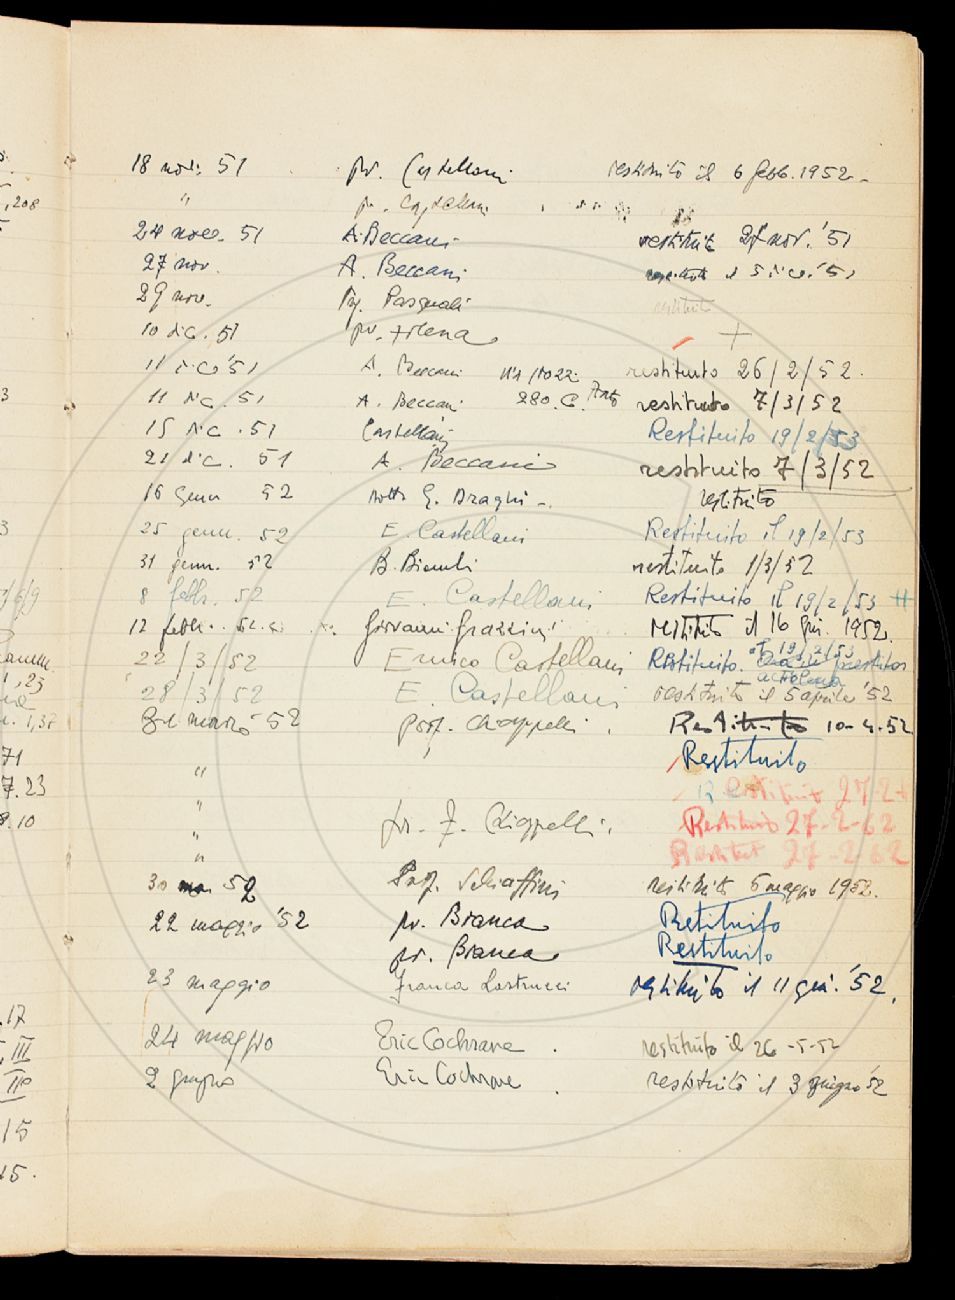 208
18 nov. 51 pr. Castellani restituito il 6 febb. 1952.
" pr. Castellani
24 nov. 51 A. Beccani restituito 27 nov. '51
27 nov. A. Beccani restituito il 5 dic. '51
29 nov. Pasquali restituito
10 dic. 51 pr. +
11 dic. '51 A. Beccani restituito 26/2/52.
11 dic. 51 A. Beccani 280. C. restituito 7/3/52
15 dic. 51 Castellani Restituito 19/2/53
21 dic. 51 A. Beccani restituito 7/3/52
16 genn 52 dott. G. Draghi restituito
25 genn. 52 E. Castellani Restituito il 19/2/53
31 genn. 52 B. restituito 1/3/52
8 febbr. 52 E. Castellani Restituito il 19/2/53
12 febbr. 52 Giovanni Grazzini restituito il 16 giu. 1952.
22/3/52 Enrico Castellani Restituito. il 19/2/53
28/3/52 E. Castellani restituito il 5 aprile '52
31 marzo 52 Prof. Chiappelli. Restituito 10-4-52
Restituito
" Restituito 27-2
" pr. F. Chiappelli. Restituito 27-2-62
" Restituit 27-2-62
"
30 52 Prof. Schiaffini restituito 6 maggio 1952.
22 maggio '52 pr. Branca Restituito
pr. Branca Restituito
23 maggio Franca Lastrucci restituito il 11 giu. '52.
24 maggio Eric Cochrane. restituito il 26-5-52
2 giugno Eric Cochrane. restituito il 3 giugno '52
71
7.23
8.10
.17
III
III
15
15.